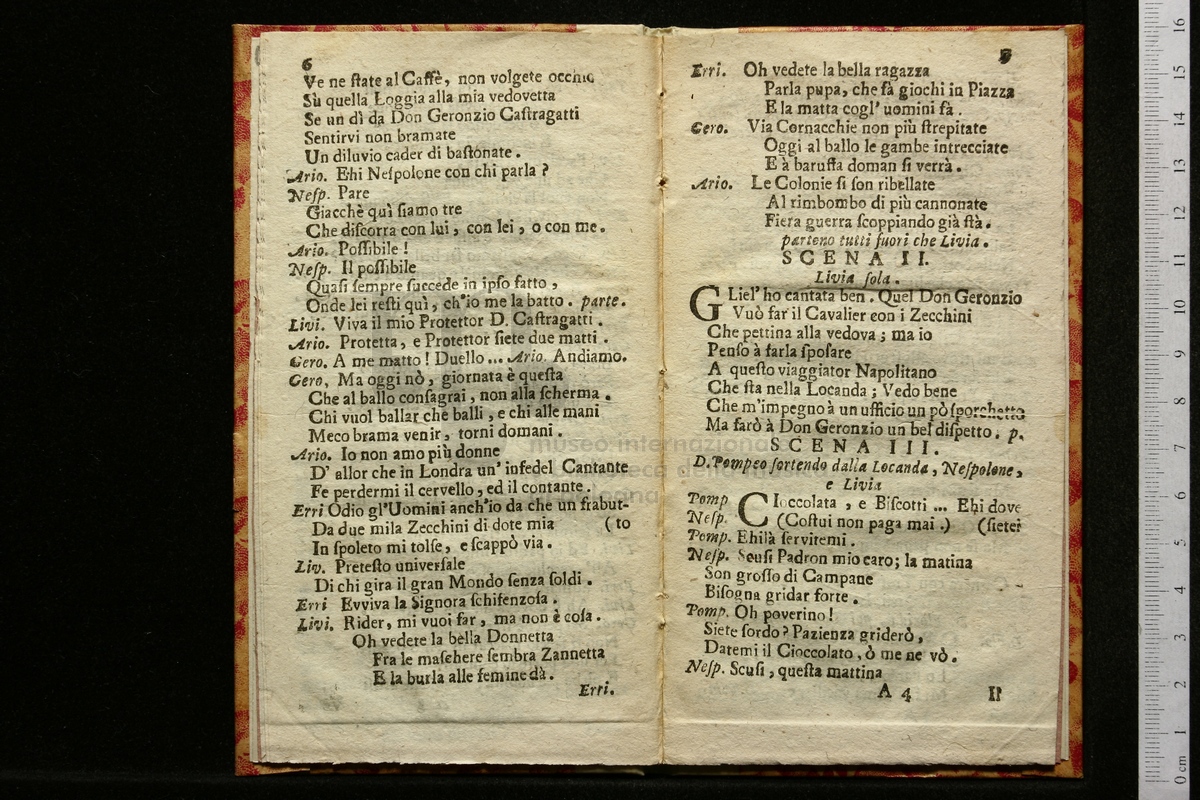 6
Ve ne ſtate al Caffè, non volgete occhio
Sù quella Loggia alla mia vedovetta
Se un dì da Don Geronzio Caſtragatti
Sentirvi non bramate
Un diluvio cader di baſtonate.
Ario. Ehi Neſpolone con chi parla?
Neſp. Pare
Giacchè quì ſiamo tre
Che diſcorra con lui, con lei, o con me.
Ario. Poſſibile!
Neſp. Il poſſibile
Quaſi ſempre ſuccede in ipſo fatto,
Onde lei reſti quì, ch'io me la batto. parte.
Livi. Viva il mio Protettor D. Caſtragatti.
Ario. Protetta, e Protettor ſiete due matti.
Gero. A me matto! Duello... Ario. Andiamo.
Gero, Ma oggi nò, giornata è queſta
Che al ballo conſagrai, non alla ſcherma.
Chi vuol ballar che balli, e chi alle mani
Meco brama venir, torni domani.
Ario. Io non amo più donne
D' allor che in Londra un' infedel Cantante
Fe perdermi il cervello, ed il contante.
Erri Odio gl'Uomini anch'io da che un frabut-
Da due mila Zecchini di dote mia (to
In ſpoleto mi tolſe, e ſcappò via.
Liv. Preteſto univerſale
Di chi gira il gran Mondo ſenza ſoldi.
Erri Evviva la Signora ſchifenzoſa.
Livi. Rider, mi vuoi far, ma non è coſa.
Oh vedete la bella Donnetta
Fra le maſchere ſembra Zannetta
E la burla alle femine dà.
Erri.
Erri. Oh vedete la bella ragazza
Parla pupa, che fà giochi in Piazza
E la matta cogl' uomini fà.
Gero. Via Cornacchie non più ſtrepitate
Oggi al ballo le gambe intrecciate
E à baruffa doman ſi verrà.
Ario. Le Colonie ſi ſon ribellate
Al rimbombo di più cannonate
Fiera guerra ſcoppiando già ſtà.
parteno tutti fuori che Livia.
SCENA II.
Livia ſola.
GLiel' ho cantata ben. Quel Don Geronzio
Vuò far il Cavalier eon i Zecchini
Che pettina alla vedova; ma io
Penſo à farla ſpoſare
A queſto viaggiator Napolitano
Che ſta nella Locanda; Vedo bene
Che m'impegno à un ufficio un pò ſporchetto
Ma farò à Don Geronzio un bel diſpetto. p.
SCENA III.
D. Pompeo ſortendo dalla Locanda, Neſpolone,
e Livia
Pomp CIoccolata, e Biſcotti ... Ehi dove
Neſp. (Coſtui non paga mai.) (ſiete?
Pomp. Ehilà ſervitemi.
Neſp. Scuſi Padron mio caro; la matina
Son groſſo di Campane
Biſogna gridar forte.
Pomp. Oh poverino!
Siete ſordo? Pazienza griderò,
Datemi il Cioccolato, ò me ne vò.
Neſp. Scuſi, queſta mattina
A 4 Il
museo internazionale